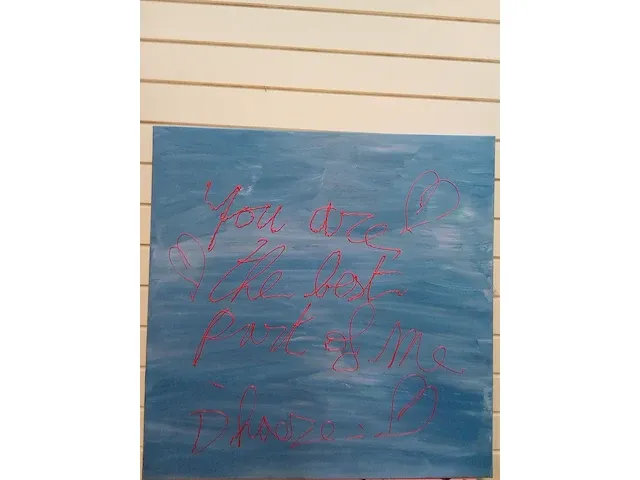 You are
the best
part of me